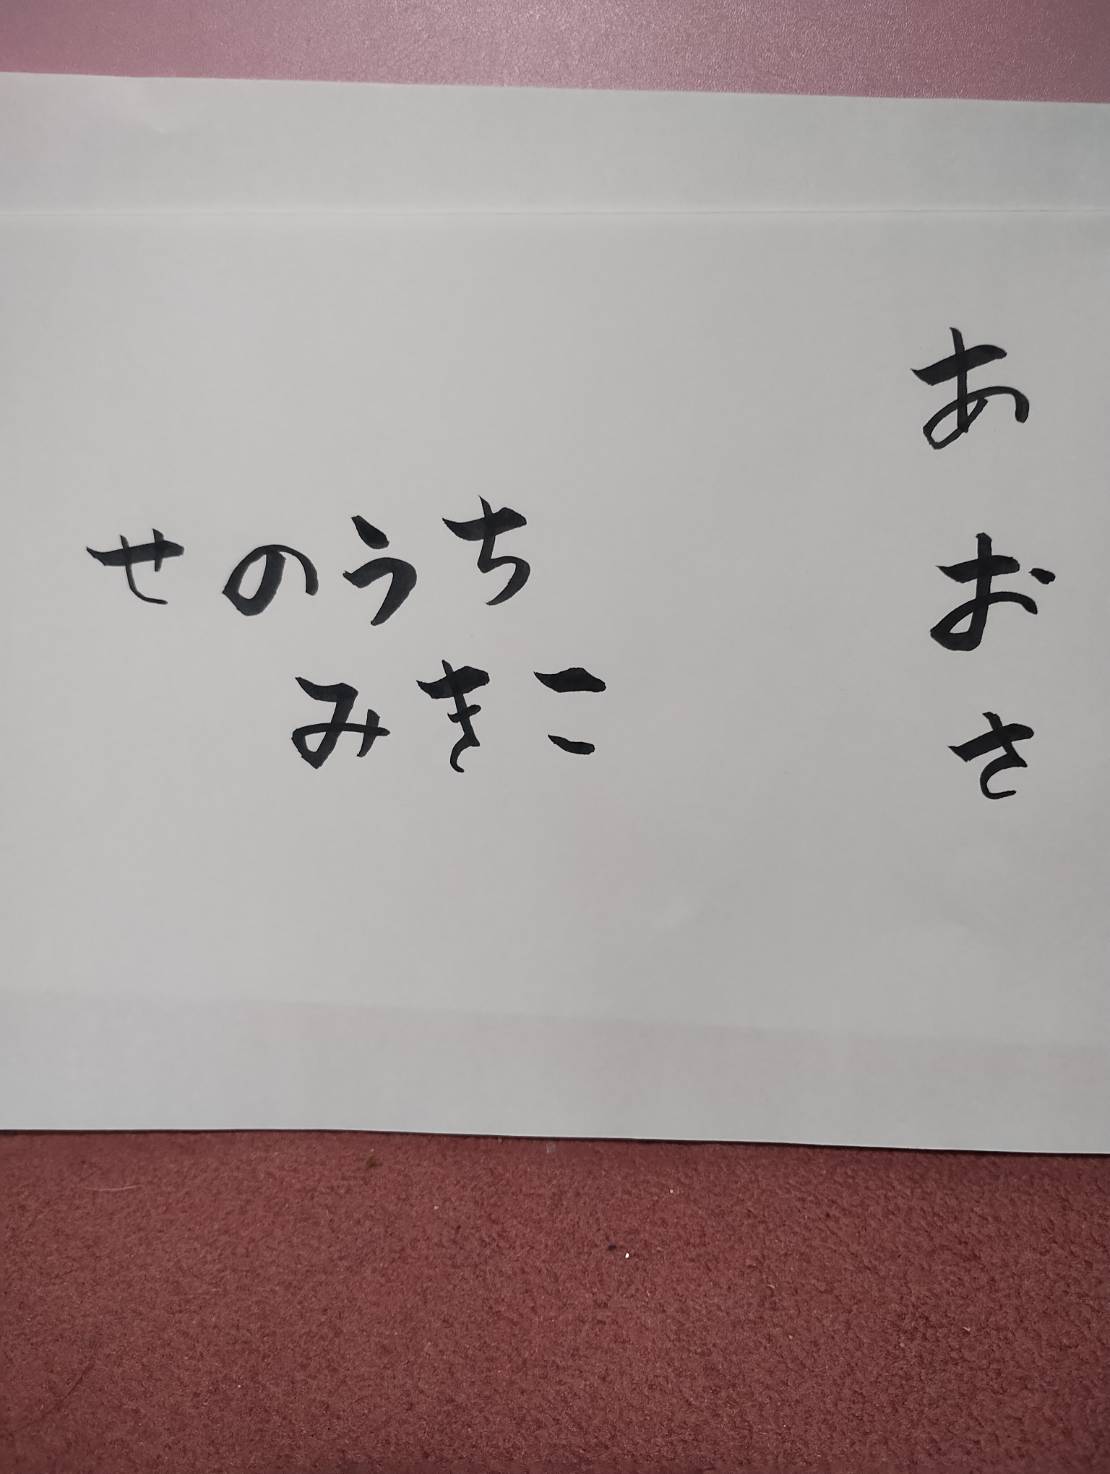 あおさ
せのうち
みきこ